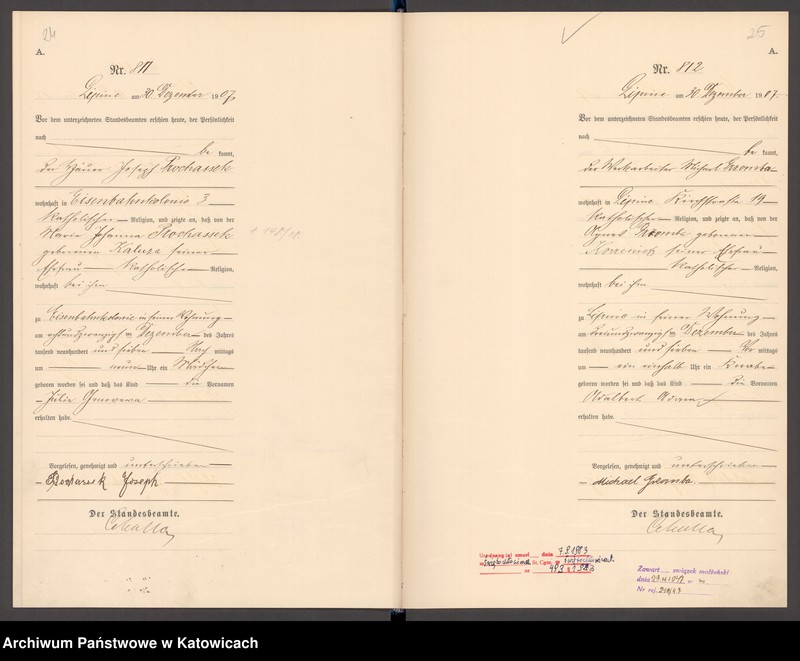 24
A.
Nr. 811
Lipine am 30 Dezember 1907
Vor dem unterzeichneten Standesbeamten erschien heute, der Persönlichkeit
nach
be kannt,
der Häuer Joseph Prochassek
wohnhaft in Eisenbahnkolonie 3
katholischer Religion, und zeigte an, daß von der
Maria Johanna Prochassek
geborenen Kaluza seiner
Ehefrau katholischer Religion,
wohnhaft bei ihm
zu Eisenbahnkolonie in seiner Wohnung
am achtundzwanzigsten Dezember des Jahres
tausend neunhundert und sieben Nach mittags
um neun Uhr ein Mädchen
geboren worden sei und daß das Kind die Vornamen
Julie Genowewa
erhalten habe.
Vorgelesen, genehmigt und unterschrieben
Prochassek Joseph
Der Standesbeamte.
25
A.
Nr. 812
Lipine am 30 Dezember 1907
Vor dem unterzeichneten Standesbeamten erschien heute, der Persönlichkeit
nach
be kannt,
der Werkarbeiter Michael
wohnhaft in Lipine Kirchstraße 19
katholischer Religion, und zeigte an, daß von der
Agnes geborenen
seiner Ehefrau
katholischer Religion,
wohnhaft bei ihm
zu Lipine in seiner Wohnung
am Dezember des Jahres
tausend neunhundert und sieben Vor mittags
um ein einhalb Uhr ein Knabe
geboren worden sei und daß das Kind die Vornamen
Adalbert Adam
erhalten habe.
Vorgelesen, genehmigt und unterschrieben
Michael
Der Standesbeamte.
dnia 7.8.1983
St. Cyw. w
nr 493
Zawarł związek małżeński
dnia
Nr rej.
Archiwum Państwowe w Katowicach